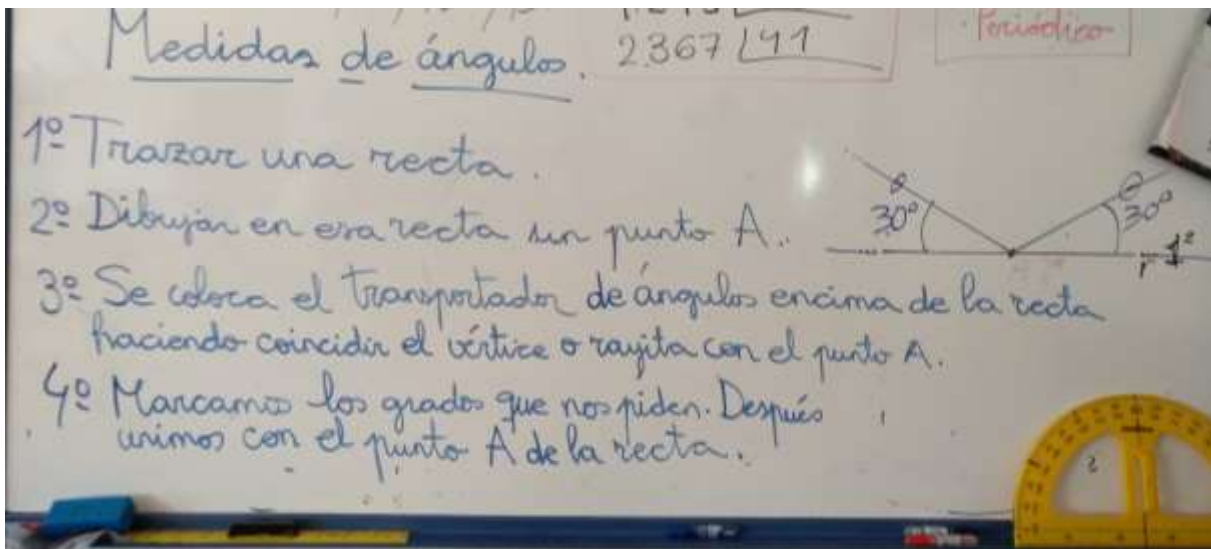 Medidas de ángulos.
2.367 41
Periódico
1º Trazar una recta.
2º Dibujar en esa recta un punto A.
30º
30º
r
3º Se coloca el transportador de ángulos encima de la recta
haciendo coincidir el vértice o rayita con el punto A.
4º Marcamos los grados que nos piden. Después
unimos con el punto A de la recta.